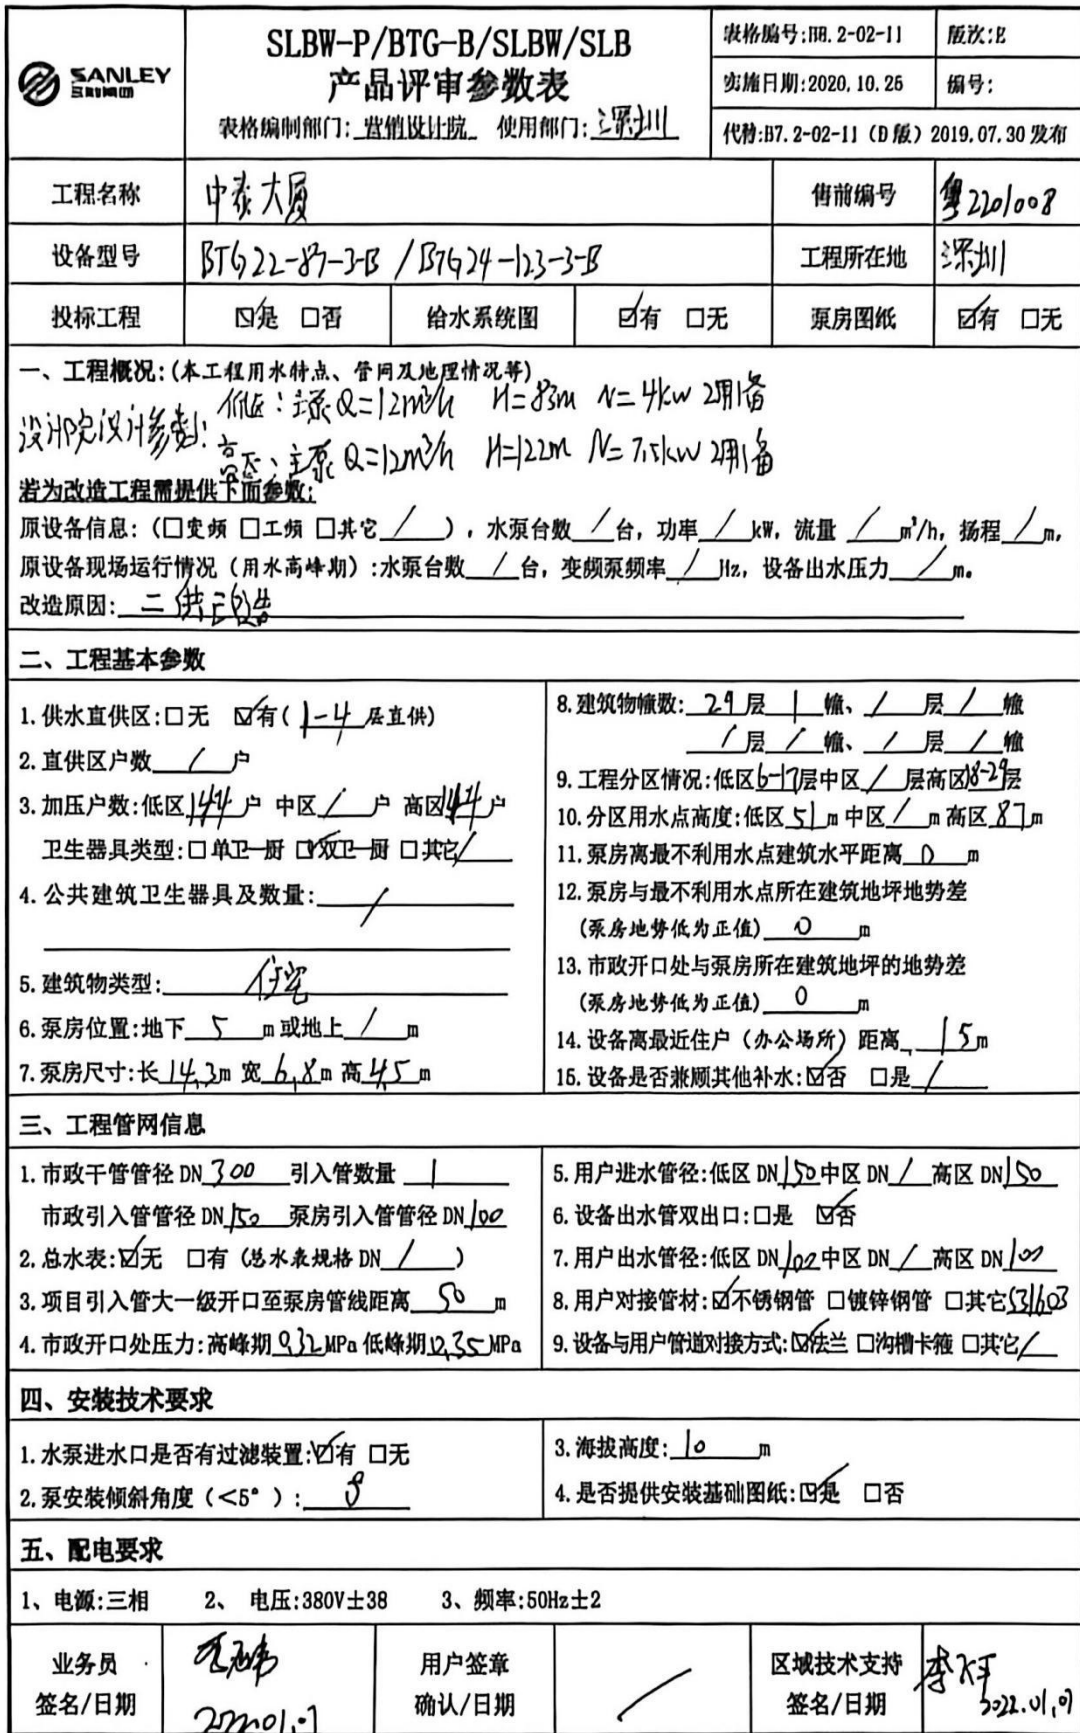 SANLEY
SLBW-P/BTG-B/SLBW/SLB
产品评审参数表
表格编制部门: 营销设计院 使用部门: 深圳
表格编号:BB.2-02-11 版次:E
实施日期:2020.10.25 编号:
代替:B7.2-02-11（D版）2019.07.30发布
工程名称 中泰大厦 售前编号 粤2201008
设备型号 BTG22-87-3-B / BTG24-123-3-B 工程所在地 深圳
投标工程 ☑是 □否 给水系统图 ☑有 □无 泵房图纸 ☑有 □无
一、工程概况:(本工程用水特点、管网及地理情况等)
设计院设计参数: 低区: 主泵 Q=12m³/h H=83m N=4kw 2用1备
高区: 主泵 Q=12m³/h H=122m N=7.5kw 2用1备
若为改造工程需提供下面参数:
原设备信息:（□变频 □工频 □其它 / ），水泵台数 / 台，功率 / kW，流量 / m³/h，扬程 / m，
原设备现场运行情况（用水高峰期）:水泵台数 / 台，变频泵频率 / Hz，设备出水压力 / m。
改造原因: 二供改造
二、工程基本参数
1.供水直供区:□无 ☑有( 1-4 层直供)
2.直供区户数 / 户
3.加压户数:低区 144 户 中区 / 户 高区 144 户
卫生器具类型:□单卫一厨 ☑双卫一厨 □其它 /
4.公共建筑卫生器具及数量: /
5.建筑物类型: 住宅
6.泵房位置:地下 5 m或地上 / m
7.泵房尺寸:长 14.3 m 宽 6.8 m 高 4.5 m
8.建筑物幢数: 29 层 1 幢、 / 层 / 幢
/ 层 / 幢、 / 层 / 幢
9.工程分区情况:低区 6-17 层中区 / 层高区 18-29 层
10.分区用水点高度:低区 51 m 中区 / m 高区 87 m
11.泵房离最不利用水点建筑水平距离 0 m
12.泵房与最不利用水点所在建筑地坪地势差
(泵房地势低为正值) 0 m
13.市政开口处与泵房所在建筑地坪的地势差
(泵房地势低为正值) 0 m
14.设备离最近住户（办公场所）距离 15 m
15.设备是否兼顾其他补水:☑否 □是 /
三、工程管网信息
1.市政干管管径 DN 300 引入管数量 1
市政引入管管径 DN 150 泵房引入管管径 DN 100
2.总水表:☑无 □有 (总水表规格 DN / )
3.项目引入管大一级开口至泵房管线距离 50 m
4.市政开口处压力:高峰期 0.32 MPa 低峰期 0.35 MPa
5.用户进水管径:低区 DN 150 中区 DN / 高区 DN 150
6.设备出水管双出口:□是 ☑否
7.用户出水管径:低区 DN 100 中区 DN / 高区 DN 100
8.用户对接管材:☑不锈钢管 □镀锌钢管 □其它 S31603
9.设备与用户管道对接方式:☑法兰 □沟槽卡箍 □其它 /
四、安装技术要求
1.水泵进水口是否有过滤装置:☑有 □无
2.泵安装倾斜角度（<5°）:
3.海拔高度: 10 m
4.是否提供安装基础图纸:☑是 □否
五、配电要求
1、电源:三相 2、电压:380V±38 3、频率:50Hz±2
业务员
签名/日期
2022.01.07
用户签章
确认/日期
/
区域技术支持
签名/日期
2022.01.07